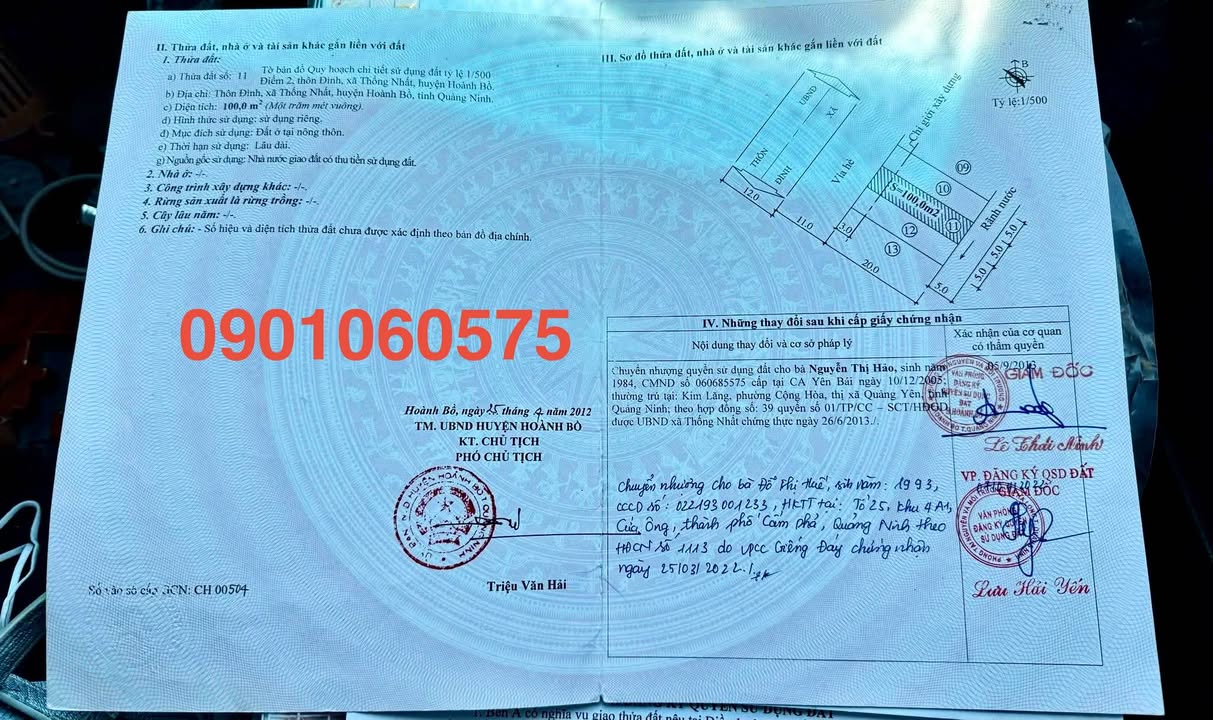 II. Thửa đất, nhà ở và tài sản khác gắn liền với đất
1. Thửa đất:
a) Thửa đất số: 11 Tờ bản đồ Quy hoạch chi tiết sử dụng đất tỷ lệ 1/500
Điểm 2, thôn Đình, xã Thống Nhất, huyện Hoành Bồ.
b) Địa chỉ: Thôn Đình, xã Thống Nhất, huyện Hoành Bồ, tỉnh Quảng Ninh.
c) Diện tích: 100,0 m² (Một trăm mét vuông).
d) Hình thức sử dụng: sử dụng riêng.
đ) Mục đích sử dụng: Đất ở tại nông thôn.
e) Thời hạn sử dụng: Lâu dài.
g) Nguồn gốc sử dụng: Nhà nước giao đất có thu tiền sử dụng đất.
2. Nhà ở: -/-.
3. Công trình xây dựng khác: -/-.
4. Rừng sản xuất là rừng trồng: -/-.
5. Cây lâu năm: -/-.
6. Ghi chú: - Số hiệu và diện tích thửa đất chưa được xác định theo bản đồ địa chính.
0901060575
Hoành Bồ, ngày 25 tháng 4 năm 2012
TM. UBND HUYỆN HOÀNH BỒ
KT. CHỦ TỊCH
PHÓ CHỦ TỊCH
Triệu Văn Hải
Số vào sổ cấp GCN: CH 00504
III. Sơ đồ thửa đất, nhà ở và tài sản khác gắn liền với đất
B
Tỷ lệ:1/500
UBND
XÃ
THÔN
ĐÌNH
Vỉa hè
Chỉ giới xây dựng
09
10
S=100,0m2
11
12
13
Rãnh nước
12.0
11.0
3.0
20.0
5.0
5.0
5.0
5.0
IV. Những thay đổi sau khi cấp giấy chứng nhận
Nội dung thay đổi và cơ sở pháp lý
Xác nhận của cơ quan
có thẩm quyền
Chuyển nhượng quyền sử dụng đất cho bà Nguyễn Thị Hảo, sinh năm
1984, CMND số 060685575 cấp tại CA Yên Bái ngày 10/12/2005;
thường trú tại: Kim Lăng, phường Cộng Hòa, thị xã Quảng Yên, tỉnh
Quảng Ninh; theo hợp đồng số: 39 quyển số 01/TP/CC – SCT/HĐGD
được UBND xã Thống Nhất chứng thực ngày 26/6/2013./.
05/9/2013
GIÁM ĐỐC
Lê Thái Ninh
Chuyển nhượng cho bà Đỗ Thị Huế, sinh năm: 1993,
CCCD số: 022193001233, HKTT tại: Tổ 25, khu 4A1,
Cửa Ông, thành phố Cẩm Phả, Quảng Ninh theo
HĐCN số 1113 do VPCC Giếng Đáy chứng nhận
ngày 25/03/2022./.
VP. ĐĂNG KÝ QSD ĐẤT
GIÁM ĐỐC
VĂN PHÒNG
ĐĂNG KÝ QUYỀN
SỬ DỤNG ĐẤT
Lưu Hải Yến